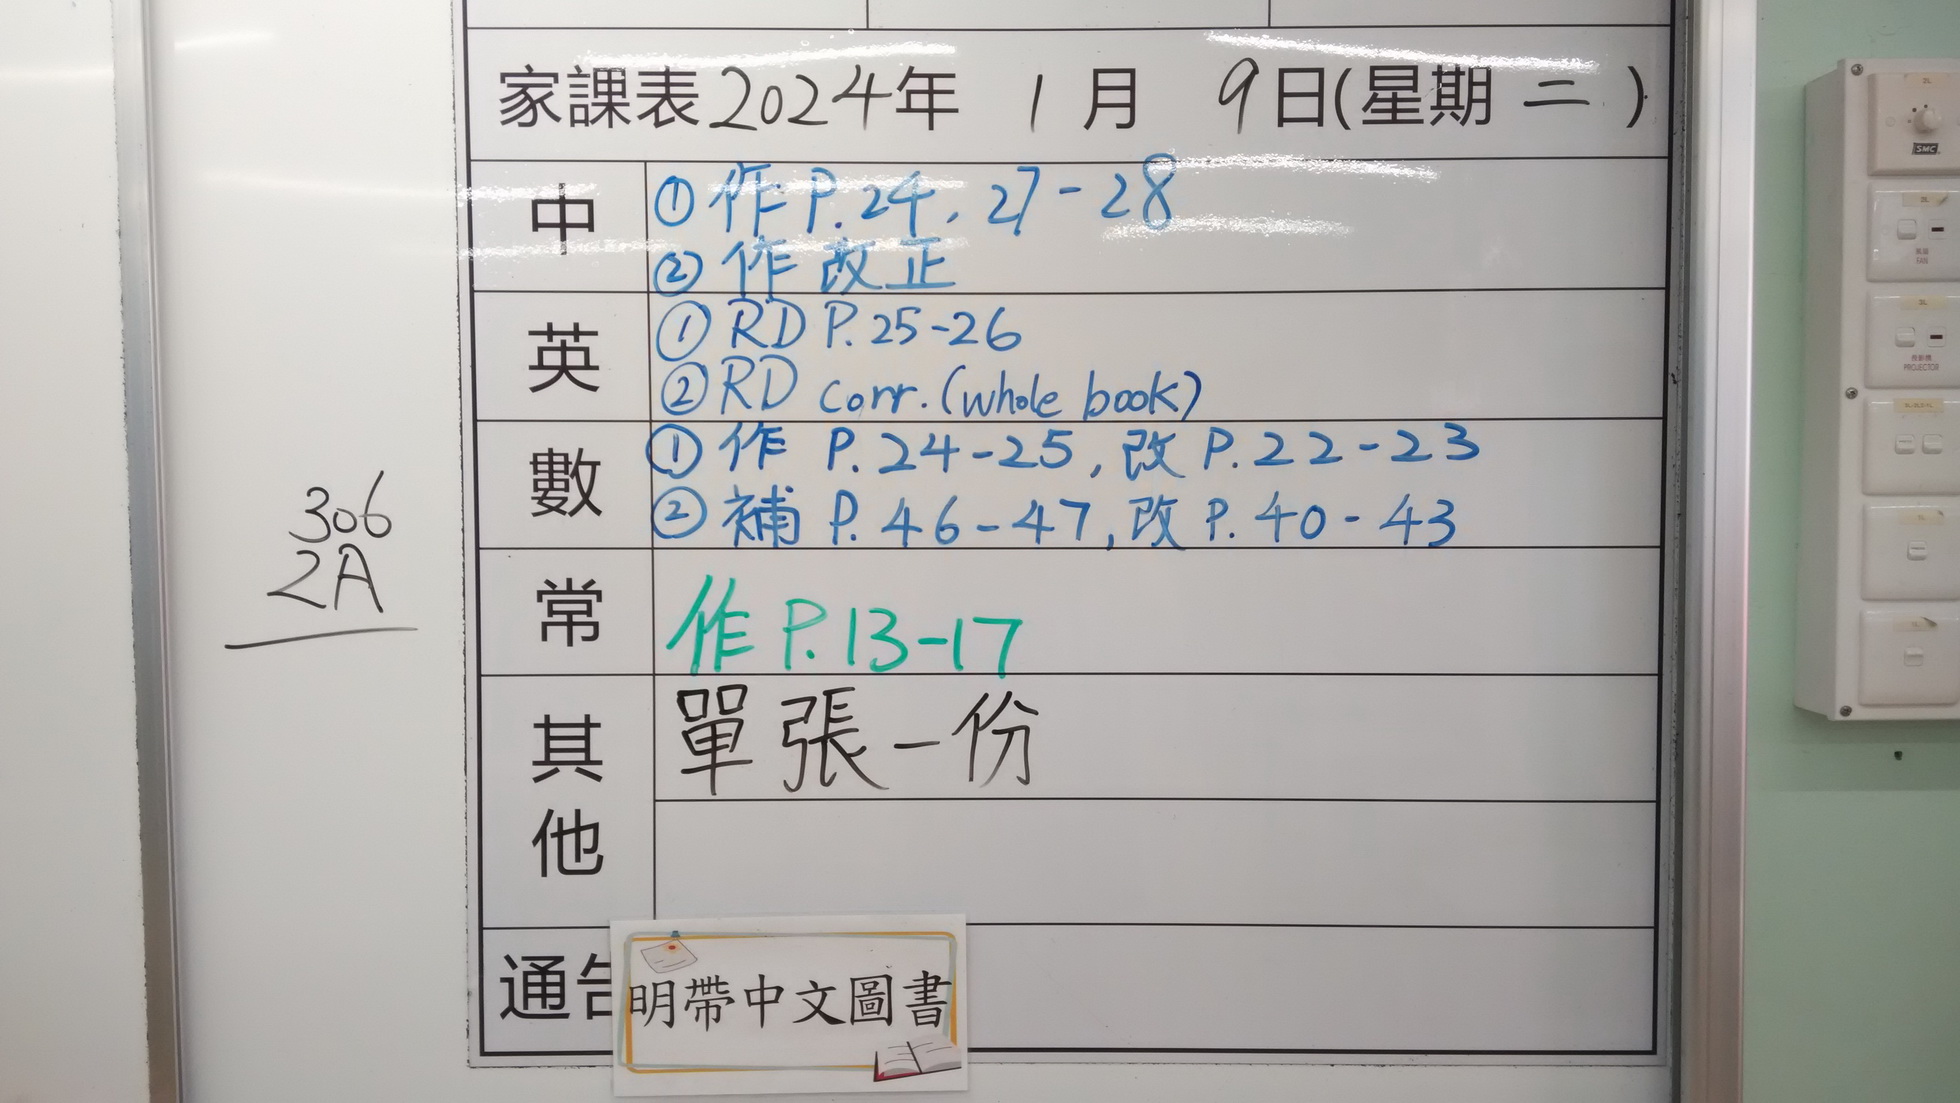 家課表2024年 1月 9日(星期二)
中
① 作 P.24, 27-28
② 作 改正
英
① RD P.25-26
② RD corr. (whole book)
數
① 作 P.24-25, 改 P.22-23
② 補 P.46-47, 改 P.40-43
常
作 P.13-17
其他
單張一份
通告
明帶中文圖書
306
2A
SMC
PROJECTOR